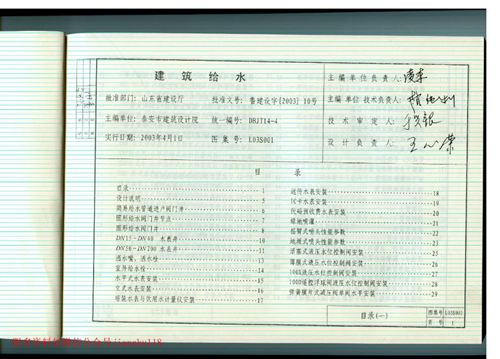 建筑给水
批准部门: 山东省建设厅 批准文号: 鲁建设字[2003] 10号
主编单位: 泰安市建筑设计院 统一编号: DBJT14-4
实行日期: 2003年4月1日 图集号: L03S001
主编单位负责人:
主编单位技术负责人:
技术审定人:
设计负责人:
目 录
目录 1
设计说明 5
简易给水管道进户阀门井 6
圆形给水阀门井节点 7
圆形给水阀门井 8
DN15-DN40 水表井 10
DN50-DN200 水表井 11
洒水嘴、洒水栓 13
室外给水栓 14
水平式水表安装 15
立式水表安装 16
暗装水表与饮用水计量仪安装 17
远传水表安装 18
IC卡水表安装 19
代码预收费水表安装 20
绿地喷灌 21
摇臂式喷头性能参数 22
地埋式喷头性能参数 23
活塞式液压水位控制阀安装 24
薄膜式液压水位控制阀安装 26
100X液压水位控制阀安装 27
100D遥控浮球阀液压水位控制阀安装 28
弹簧膜片式减压阀单阀水平安装 29
目录(一)
图集号 L03S001
页号 1